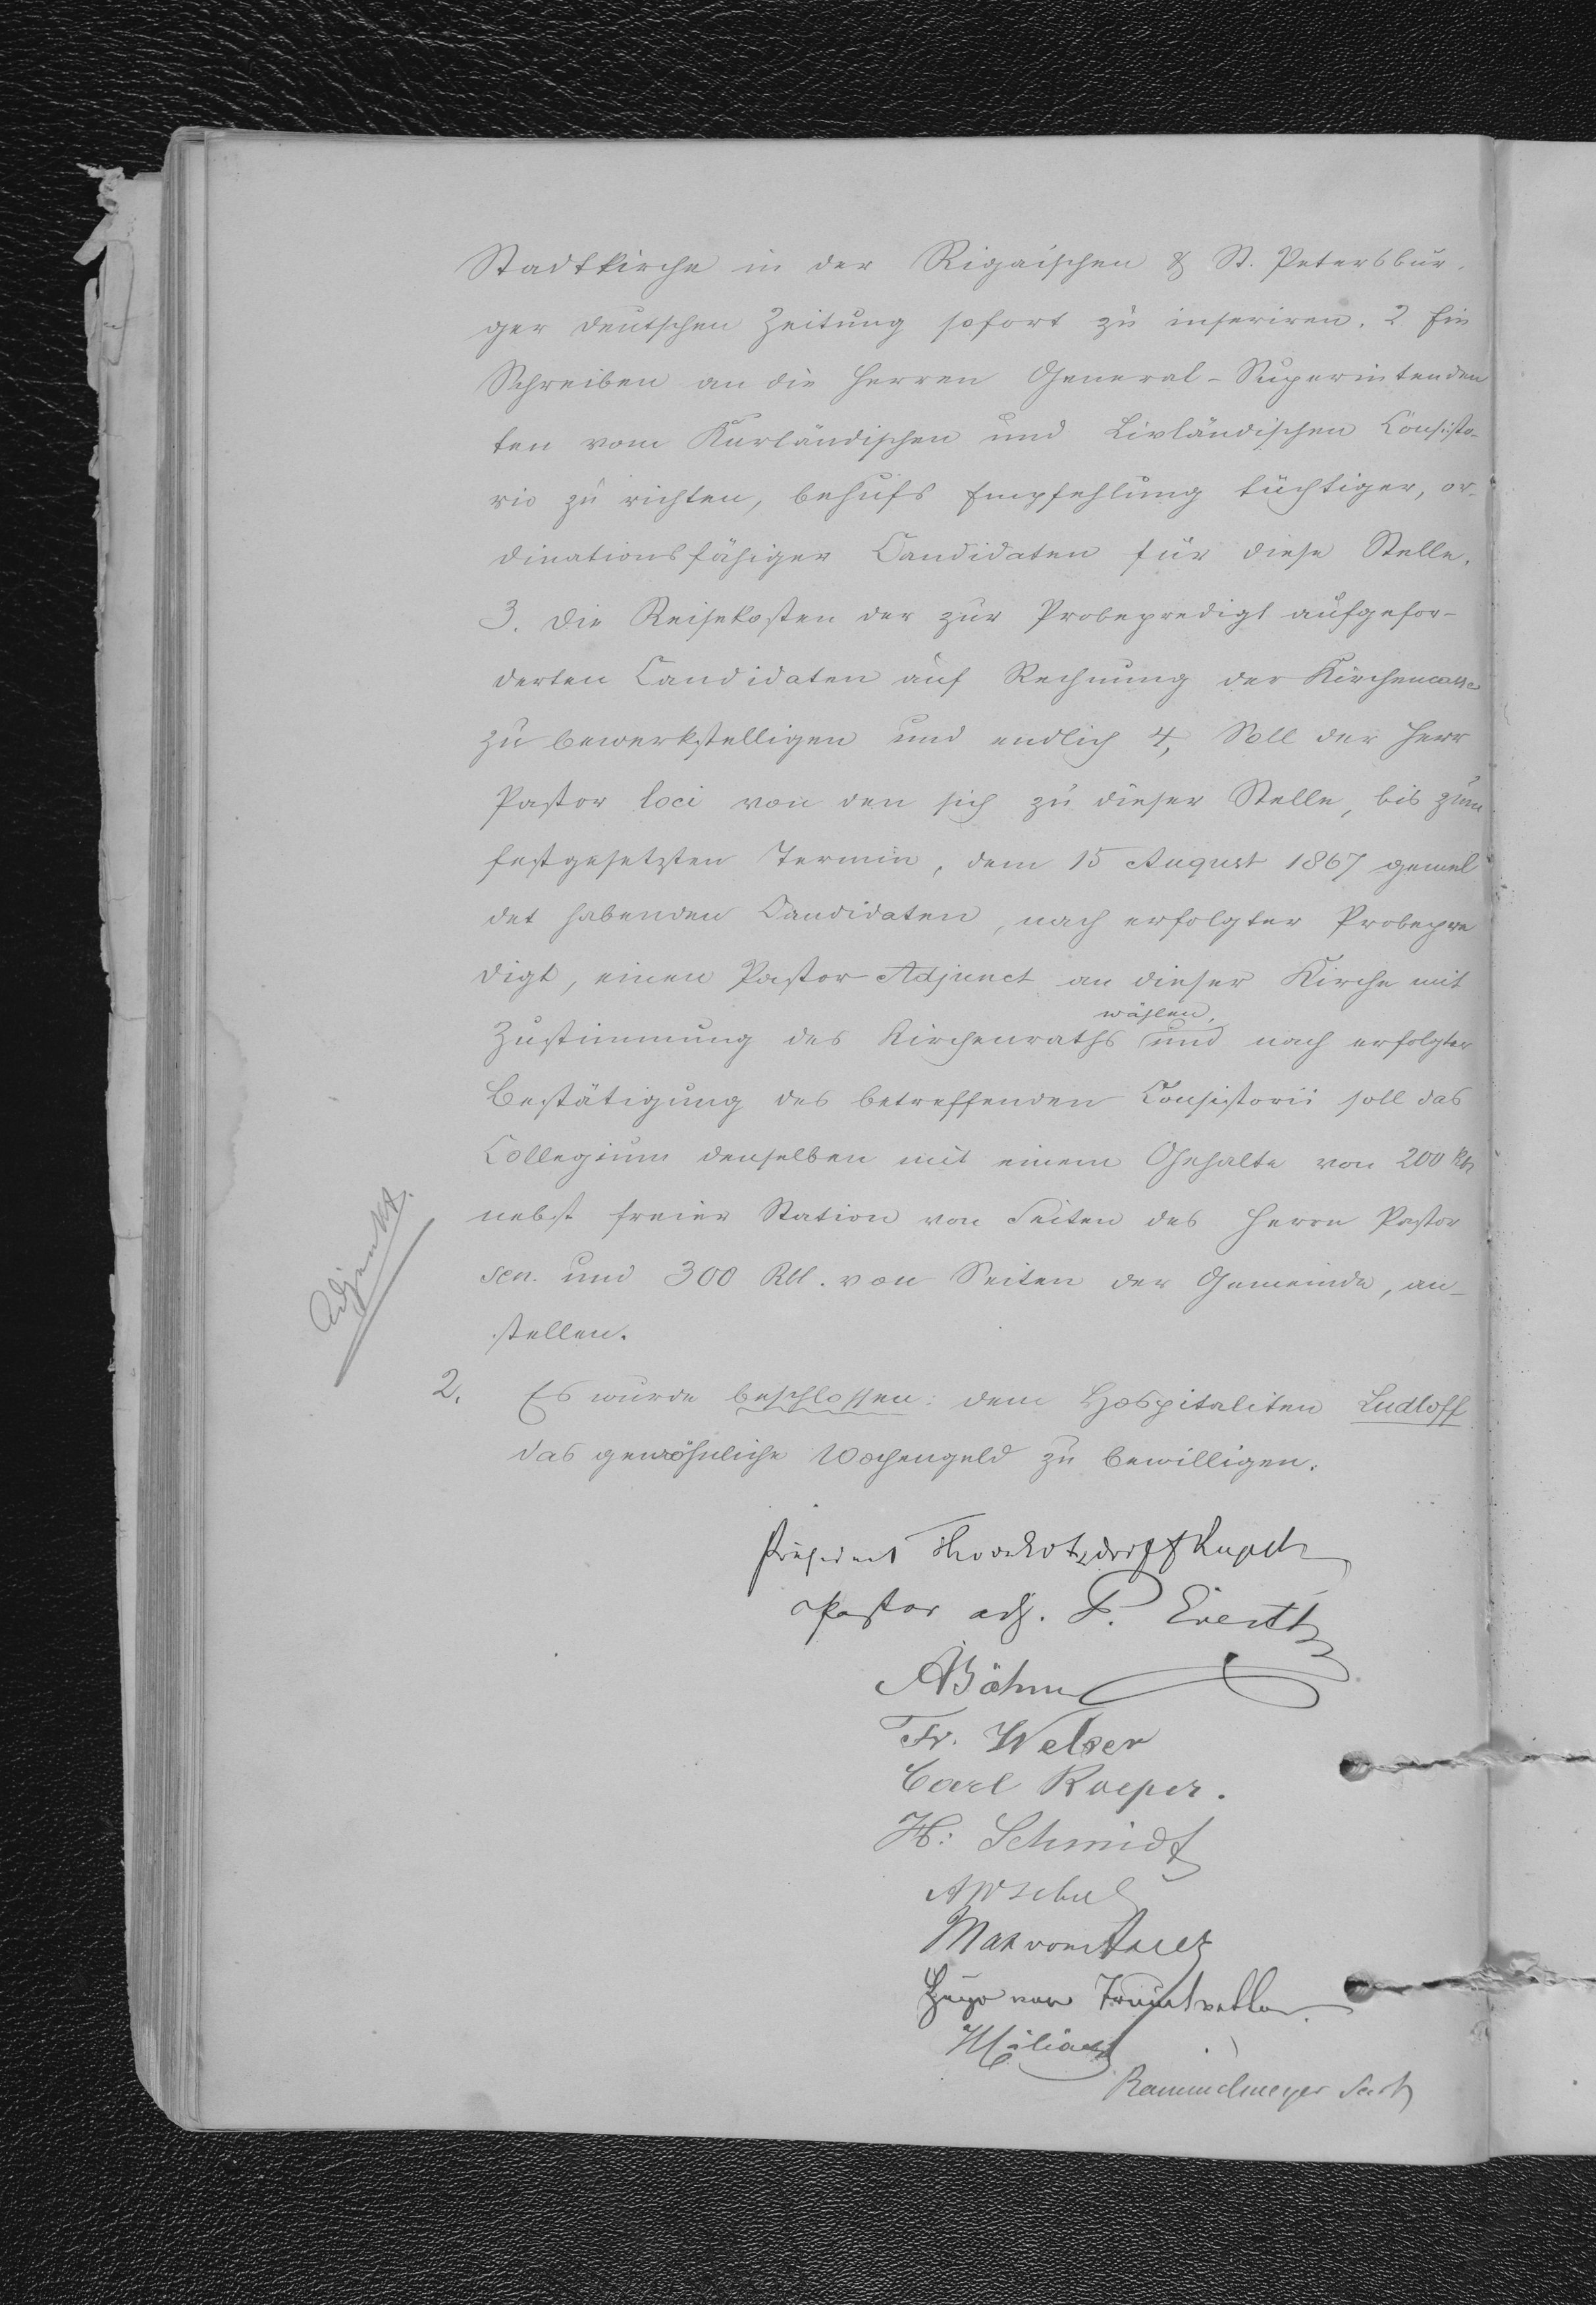 Stadtkirche in der Rigaischen & St. Petersbur-
ger deutschen Zeitung sofort zu inseriren. 2 Ein
Schreiben an die Herren General-Superintenden
ten vom Kurländischen und Livländischen Consisto-
rio zu richten, behufs Empfehlung tüchtiger, or-
dinationsfähiger Candidaten für diese Stelle.
3. Die Reisekosten der zur Probepredigt aufgefor-
derten Candidaten auf Rechnung der Kirchencasse
zu bewerkstelligen und endlich 4, Soll der Herr
Pastor loci von den sich zu dieser Stelle, bis zum
festgesetzten Termin, dem 15 August 1867 gemel
det habenden Candidaten, nach erfolgter Probepre
digt, einen Pastor-Adjunct an dieser Kirche mit
wählen,
Zustimmung des Kirchenraths und nach erfolgter
Bestätigung des betreffenden Consistorii soll das
Collegium denselben mit einem Gehalte von 200 Rbl
nebst freier Station von Seiten des Herrn Pastor
sen. und 300 Rbl. von Seiten der Gemeinde, an-
stellen.
Adjunkt.
2. Es wurde beschlossen: dem Hospitaliten Ludloff
das gewöhnliche Wochengeld zu bewilligen.
Präsident
Pastor adj. P. Everth
A Böhm
Fr. Welzer
Carl Roeper.
H: Schmidt
Max von
Hugo von Trautvetter
Rammelmeyer Secr